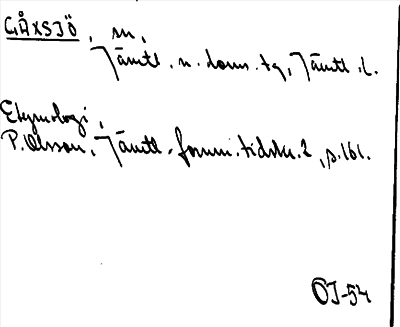 GÅXSJÖ, sn,
Jämtl. n. doms. tg, Jämtl. l.
Etymologi,
P. Olsson, Jämtl. fornm. tidskr. 2, s. 161.
OJ-54